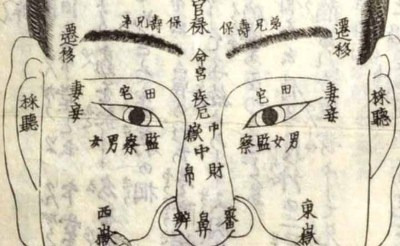 官祿
保壽
兄弟
保壽
兄弟
遷移
遷移
命宮
疾厄
田宅
田宅
妻妾
妻妾
採聽
採聽
男女
監察
監察
男女
中嶽
中
財帛
帛
審辨
鼻
東嶽
西嶽